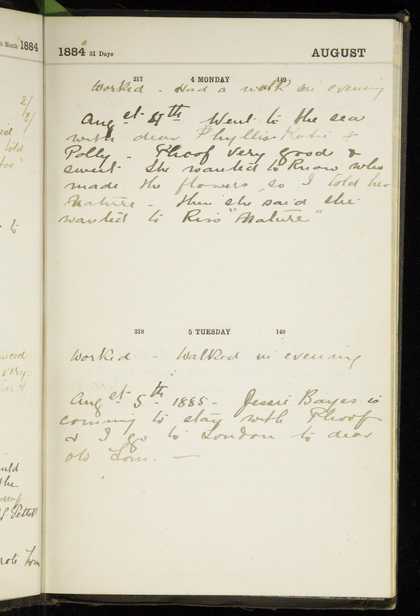 1884
1884 31 Days AUGUST
217 4 MONDAY 149
Worked - Had a walk in evening
Aug st 4th Went to the sea
with dear Phyllis Katie &
Polly - Phoof very good &
sweet She wanted to know who
made the flowers, so I told her
Nature - then she said she
wanted to kiss "Nature"
218 5 TUESDAY 148
Worked - Walked in evening
Aug st 5th 1885 - Jessie Bayes is
coming to stay with Phoof
& I go to London to dear
old Tom. —